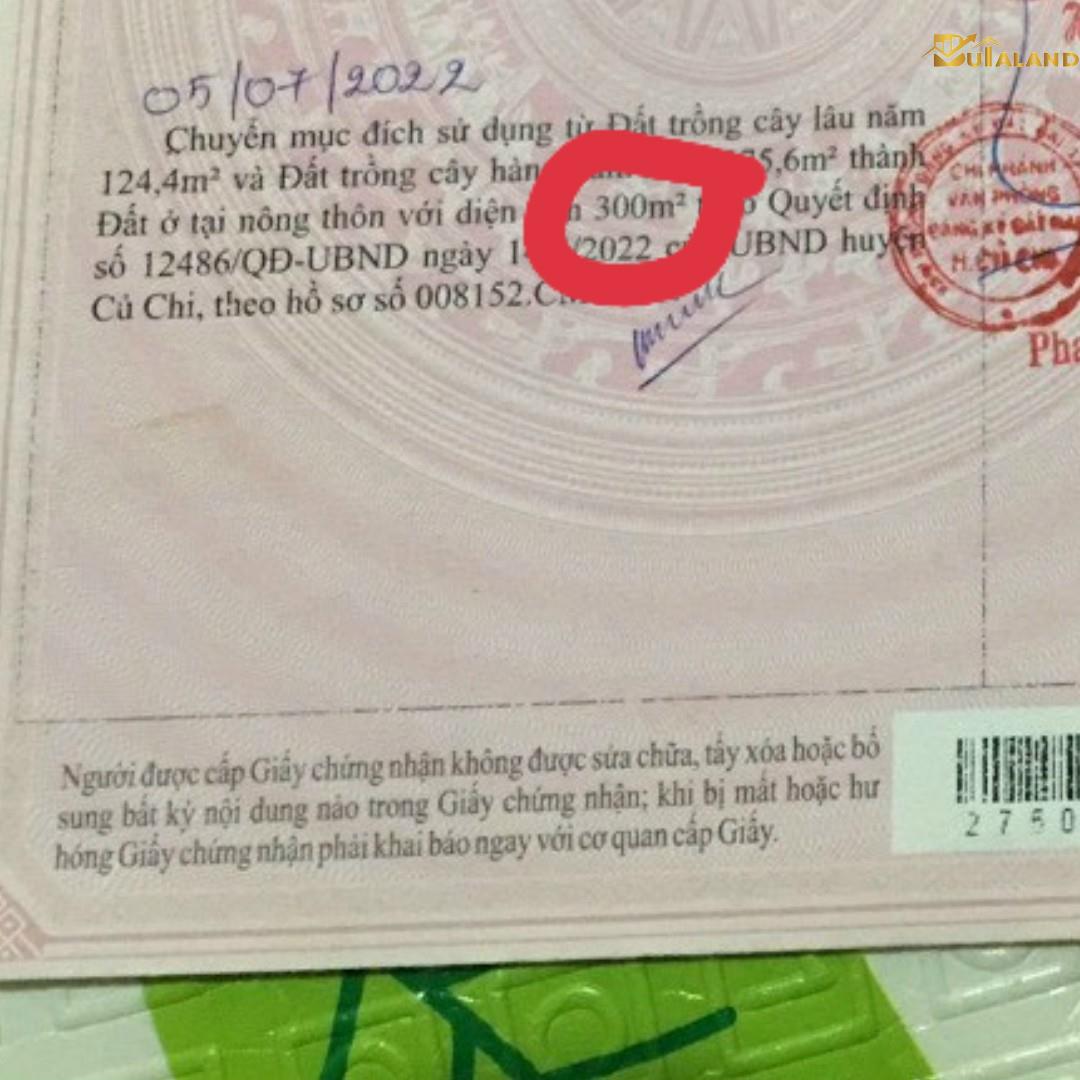 BUTALAND
05/07/2022
Chuyển mục đích sử dụng từ Đất trồng cây lâu năm
124,4m² và Đất trồng cây hàn 5,6m² thành
Đất ở tại nông thôn với diện 300m² Quyết định
số 12486/QĐ-UBND ngày /2022 UBND huyện
Củ Chi, theo hồ sơ số 008152.
CHI NHÁNH
VĂN PHÒNG
ĐĂNG KÝ ĐẤT ĐAI
H. CỦ CHI
Pha
Người được cấp Giấy chứng nhận không được sửa chữa, tẩy xóa hoặc bổ
sung bất kỳ nội dung nào trong Giấy chứng nhận; khi bị mất hoặc hư
hỏng Giấy chứng nhận phải khai báo ngay với cơ quan cấp Giấy.
2750